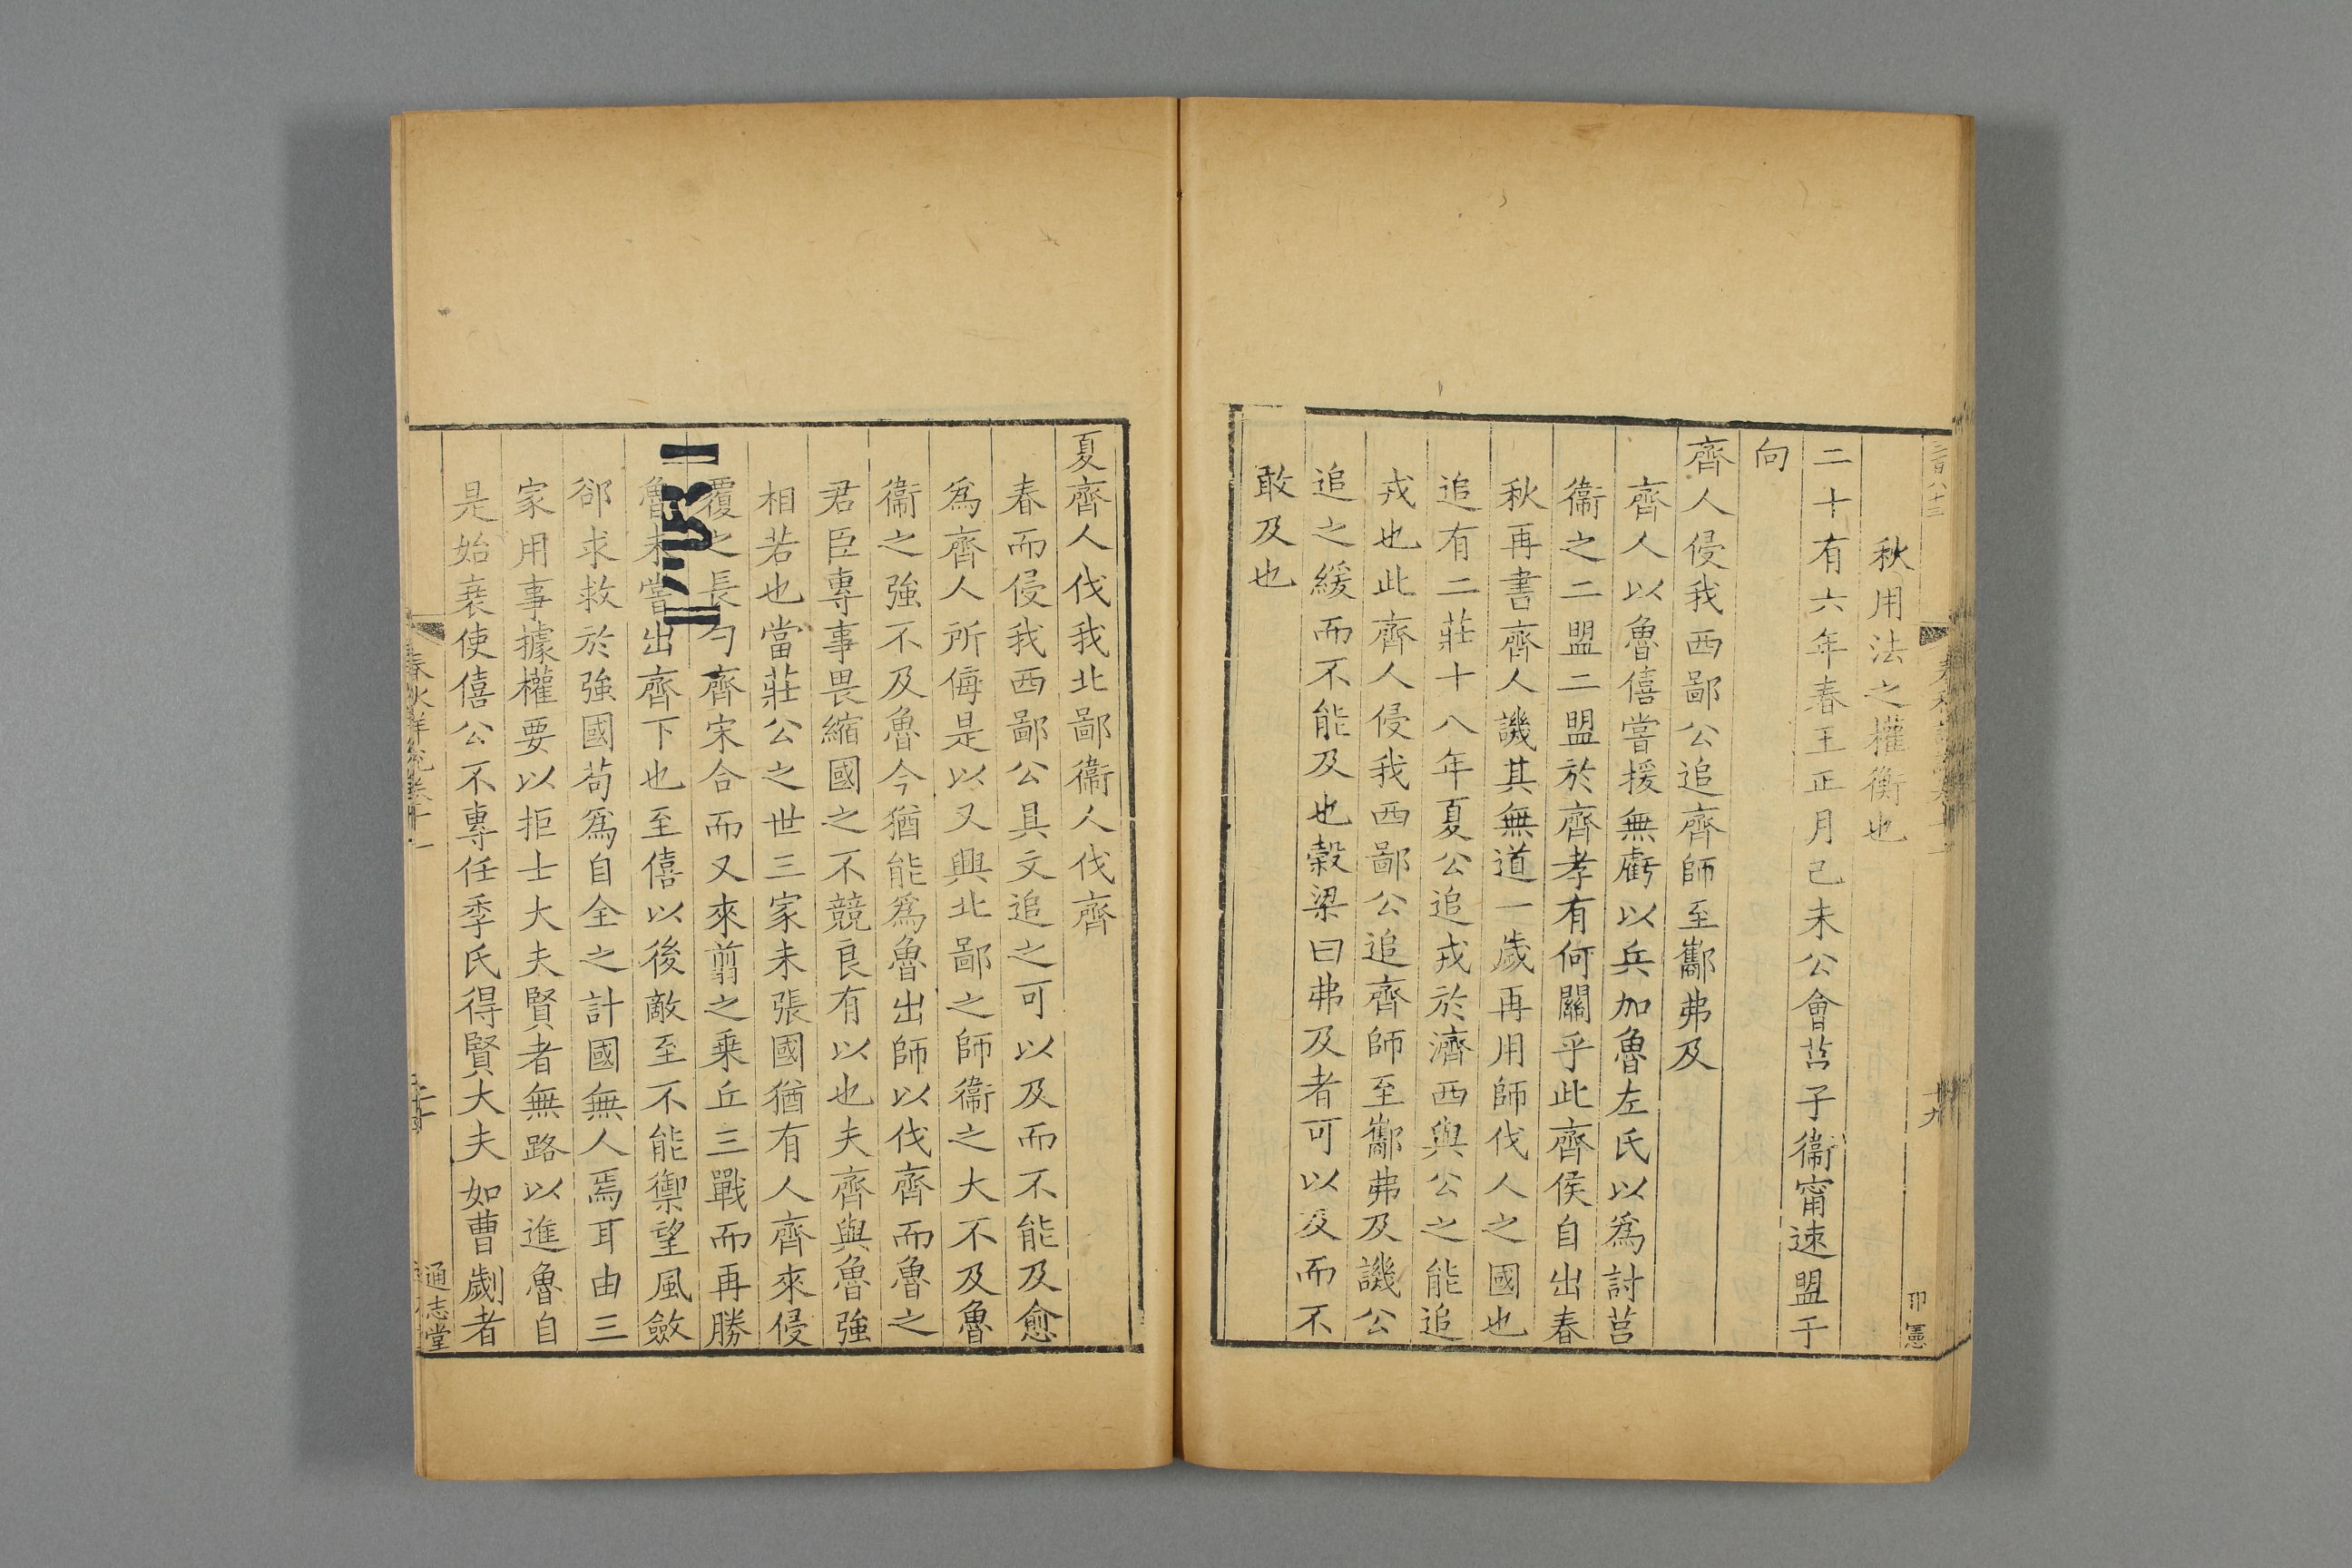 三百八十三
秋用法之權衡也
二十有六年春王正月己未公會莒子衞甯速盟于
向
齊人侵我西鄙公追齊師至酅弗及
齊人以魯僖嘗援無虧以兵加魯左氏以爲討莒
衞之二盟二盟於齊孝有何關乎此齊侯自出春
秋再書齊人譏其無道一歲再用師伐人之國也
追有二莊十八年夏公追戎於濟西與公之能追
戎也此齊人侵我西鄙公追齊師至酅弗及譏公
追之緩而不能及也榖梁曰弗及者可以及而不
敢及也
十九
夏齊人伐我北鄙衞人伐齊
春而侵我西鄙公具文追之可以及而不能及愈
爲齊人所侮是以又興北鄙之師衞之大不及魯
衞之強不及魯今猶能爲魯出師以伐齊而魯之
君臣專事畏縮國之不競良有以也夫齊與魯強
相若也當莊公之世三家未張國猶有人齊來侵
覆之長勺齊宋合而又來翦之乗丘三戰而再勝
魯未嘗出齊下也至僖以後敵至不能禦望風斂
郤求救於強國苟爲自全之計國無人焉耳由三
家用事據權要以拒士大夫賢者無路以進魯自
是始衰使僖公不專任季氏得賢大夫如曹劌者
通志堂